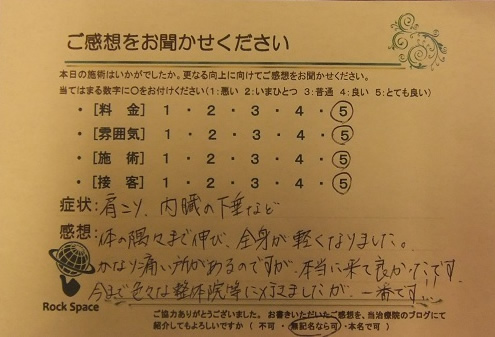 ご感想をお聞かせください
本日の施術はいかがでしたか。更なる向上に向けてご感想をお聞かせください。
当てはまる数字に○をお付けください(1:悪い 2:いまひとつ 3:普通 4:良い 5:とても良い)
・[料 金] 1 ・ 2 ・ 3 ・ 4 ・ 5
・[雰囲気] 1 ・ 2 ・ 3 ・ 4 ・ 5
・[施 術] 1 ・ 2 ・ 3 ・ 4 ・ 5
・[接 客] 1 ・ 2 ・ 3 ・ 4 ・ 5
症状:肩こり、内臓の下垂など
感想:体の隅々まで伸び、全身が軽くなりました。
かなり痛い所があるのですが、本当に来て良かったです。
今まで色々な整体院等に行きましたが、一番です!!
Rock Space
ご協力ありがとうございました。 お書きいただいたご感想を、当治療院のブログにて
紹介してもよろしいですか ( 不可 ・ 無記名なら可 ・ 本名で可 )